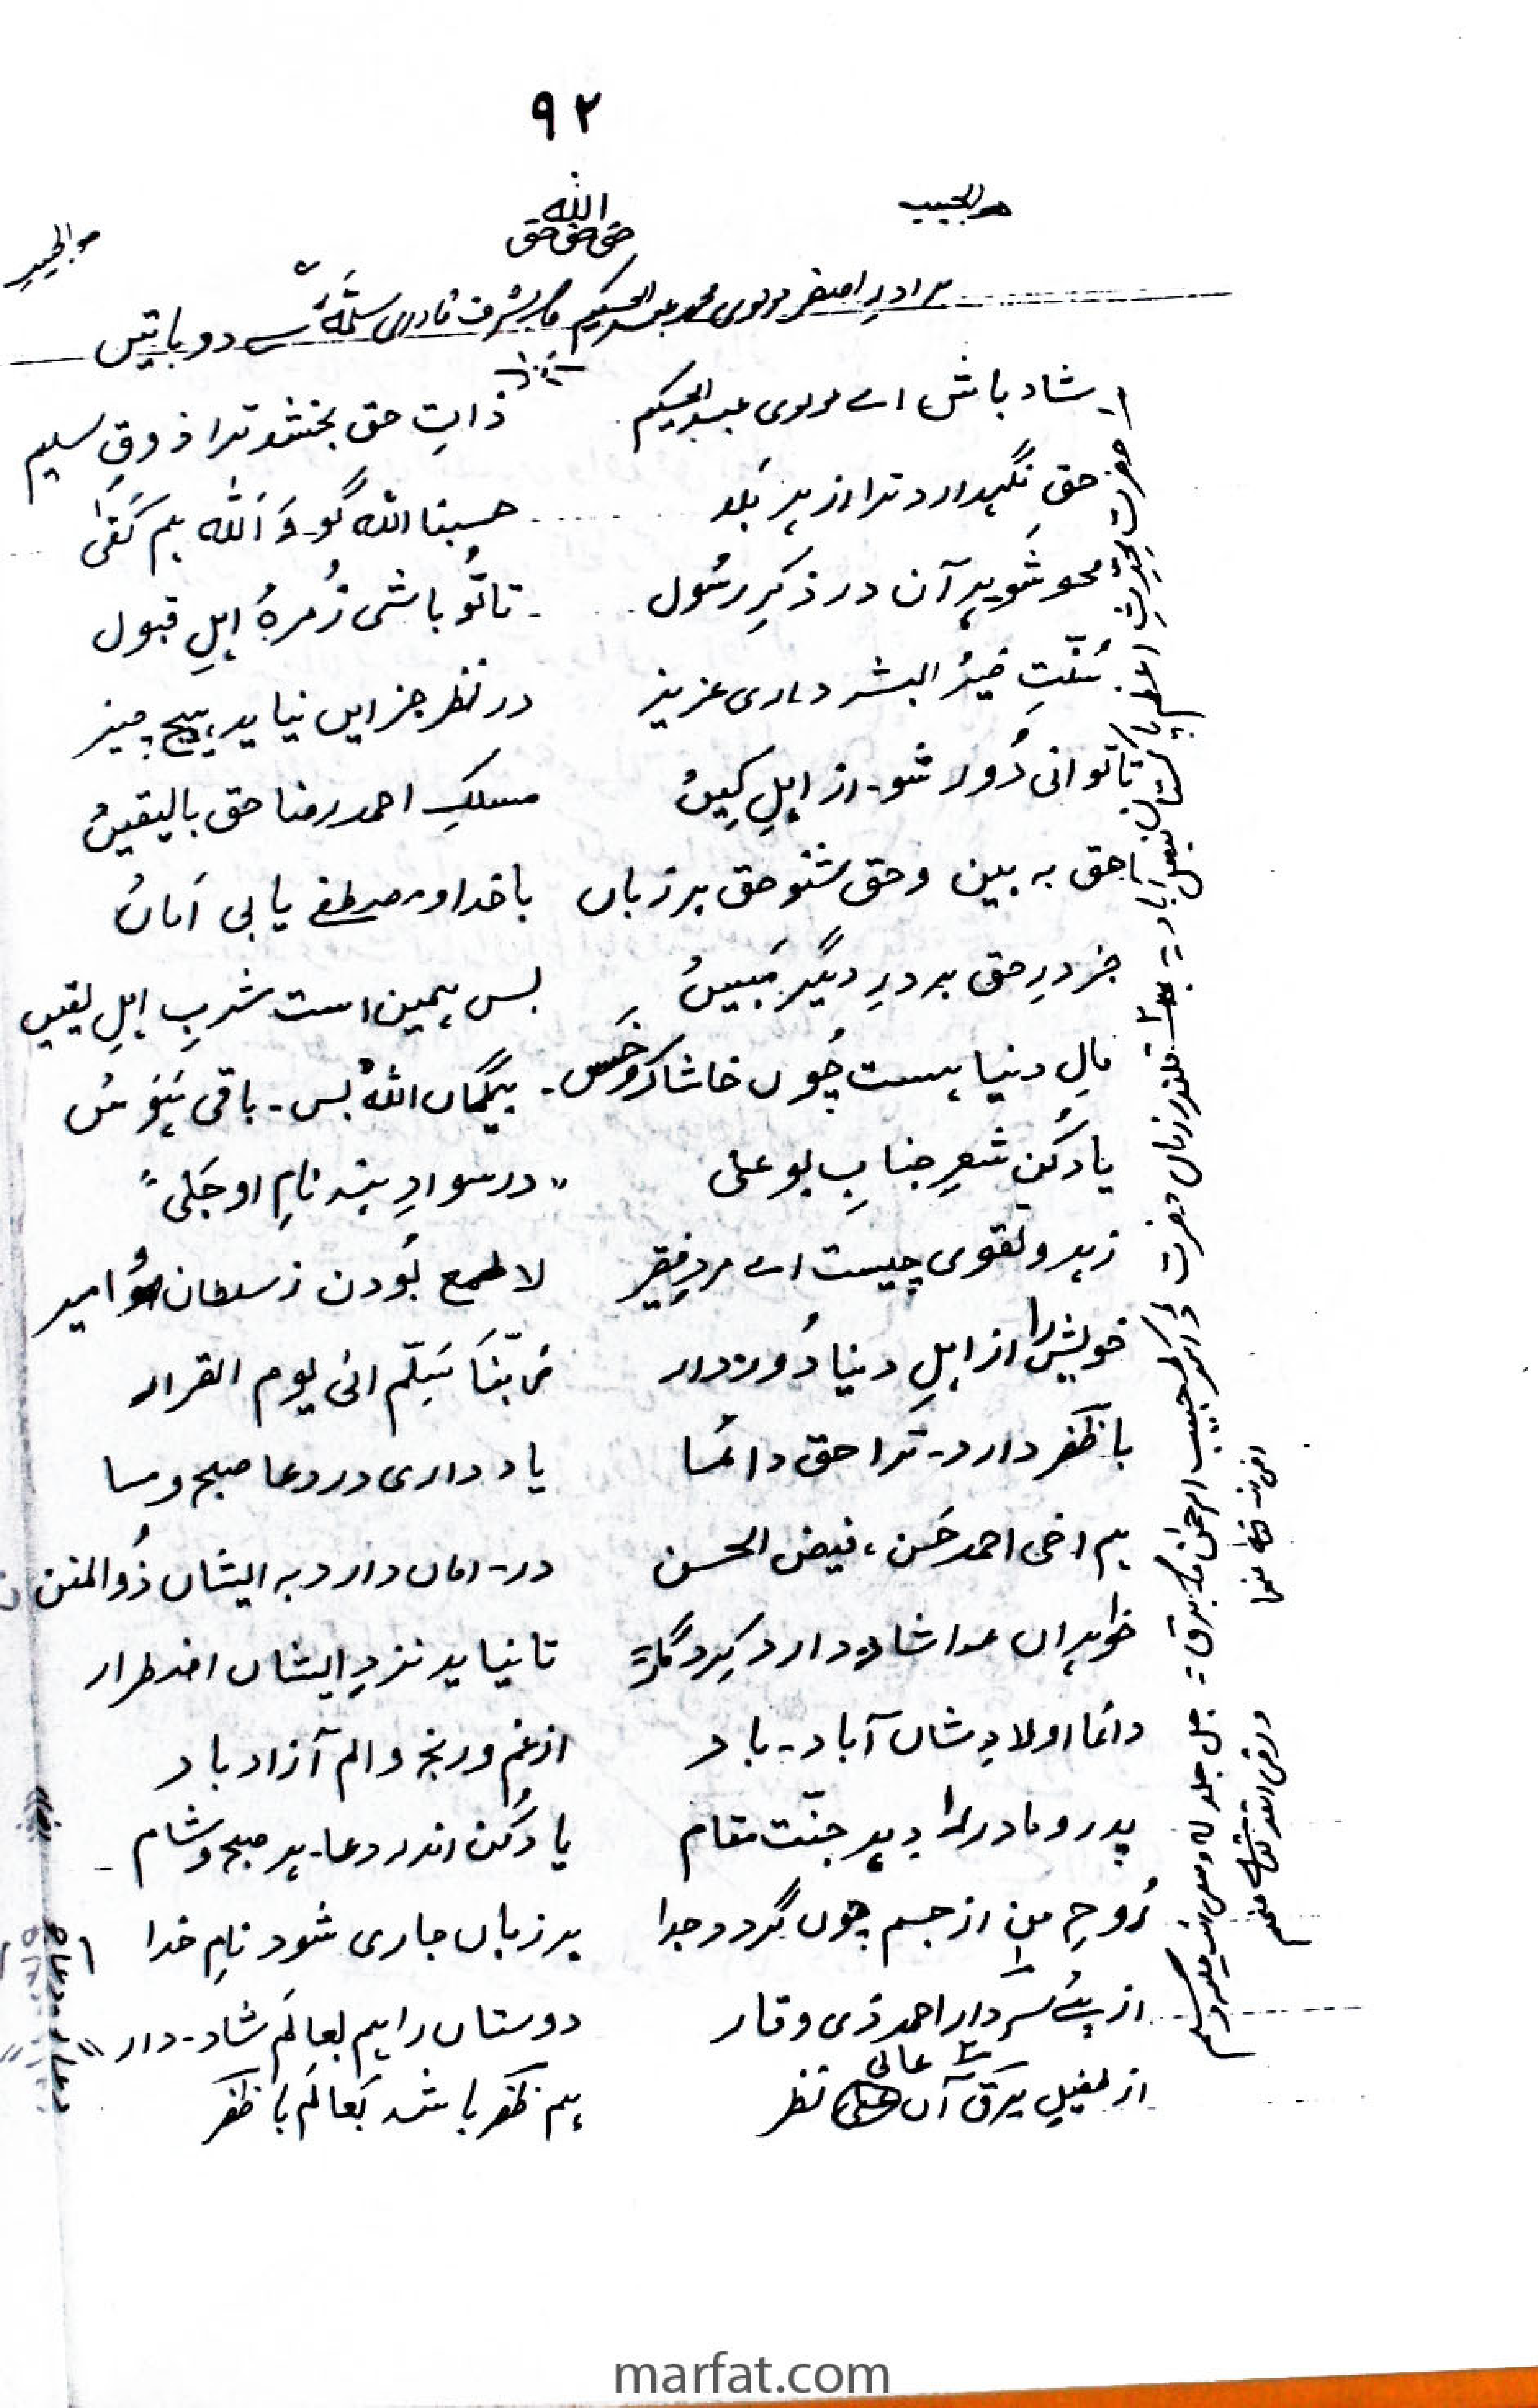 ۹۲
هوالحبیب
الله
حق حق حق
برادرِ اصغر مولوی محمد عبدالحکیم شرف قادری سلّمہٗ سے دو باتیں
۱۔ شاد باش اے مولوی عبدالحکیم ذاتِ حق بخشد ترا ذوقِ سلیم
حق نگہدارد ترا از ہر بَلا حسبنا اللہ گو۔ وَاللہ ہم کَفیٰ
محو شو ہر آن در ذکرِ رسُول تا تُو باشی زُمرۂ اہلِ قبول
سُنّتِ خیرُ البشر داری عزیز در نظر جز ایں نیاید ہیچ چیز
تا توانی دُور شو۔ از اہلِ کِیںُ مسلکِ احمد رضا حق بالیقیںُ
حق بہ بین و حق شنو حق بر زباں با خدا و مصطفےٰ یابی اَماںُ
جز درِ حق بر درِ دیگر مَبیںُ بس ہمین است شربِ اہلِ یقیں
مالِ دنیا ہست چُوں خاشاک و خَس۔ بیگماں اللہُ بس۔ باقی ہَوَس
یاد کُن شعرِ جنابِ بو علی "در سوادِ بند نامِ او جَلی"
زہد و تقویٰ چیست اے مردِ فقیر لا طمع بُودن ز سلطان و امیر
خویش را از اہلِ دنیا دُور دار رَبَّنَا سَلِّم الیٰ یوم القرار
با ظفر دارد۔ ترا حق دائما یاد داری در دعا صبح و مسا
ہم اخی احمد حَسن، فیض الحسن در۔ اماں دارد بہ ایشاں ذُوالمنن
خواہراں را شاد دارد کِردگار تا نیاید نزدِ ایشاں اضطرار
دائما اولادِ شاں آباد۔ باد از غم و رنج و الم آزاد باد
پدر و مادر را دہد جنّت مقام یاد کُن اندر دعا۔ ہر صبح و شام
رُوحِ من از جسم چوں گردد جدا بر زباں جاری شود نامِ خدا
از پئے سردار احمد ذی وقار دوستاں را ہم بعالَم شاد۔ دار
از طفیلِ برق آں عالی نظر ہم ظفر باشد بَعالَم با ظفر
marfat.com